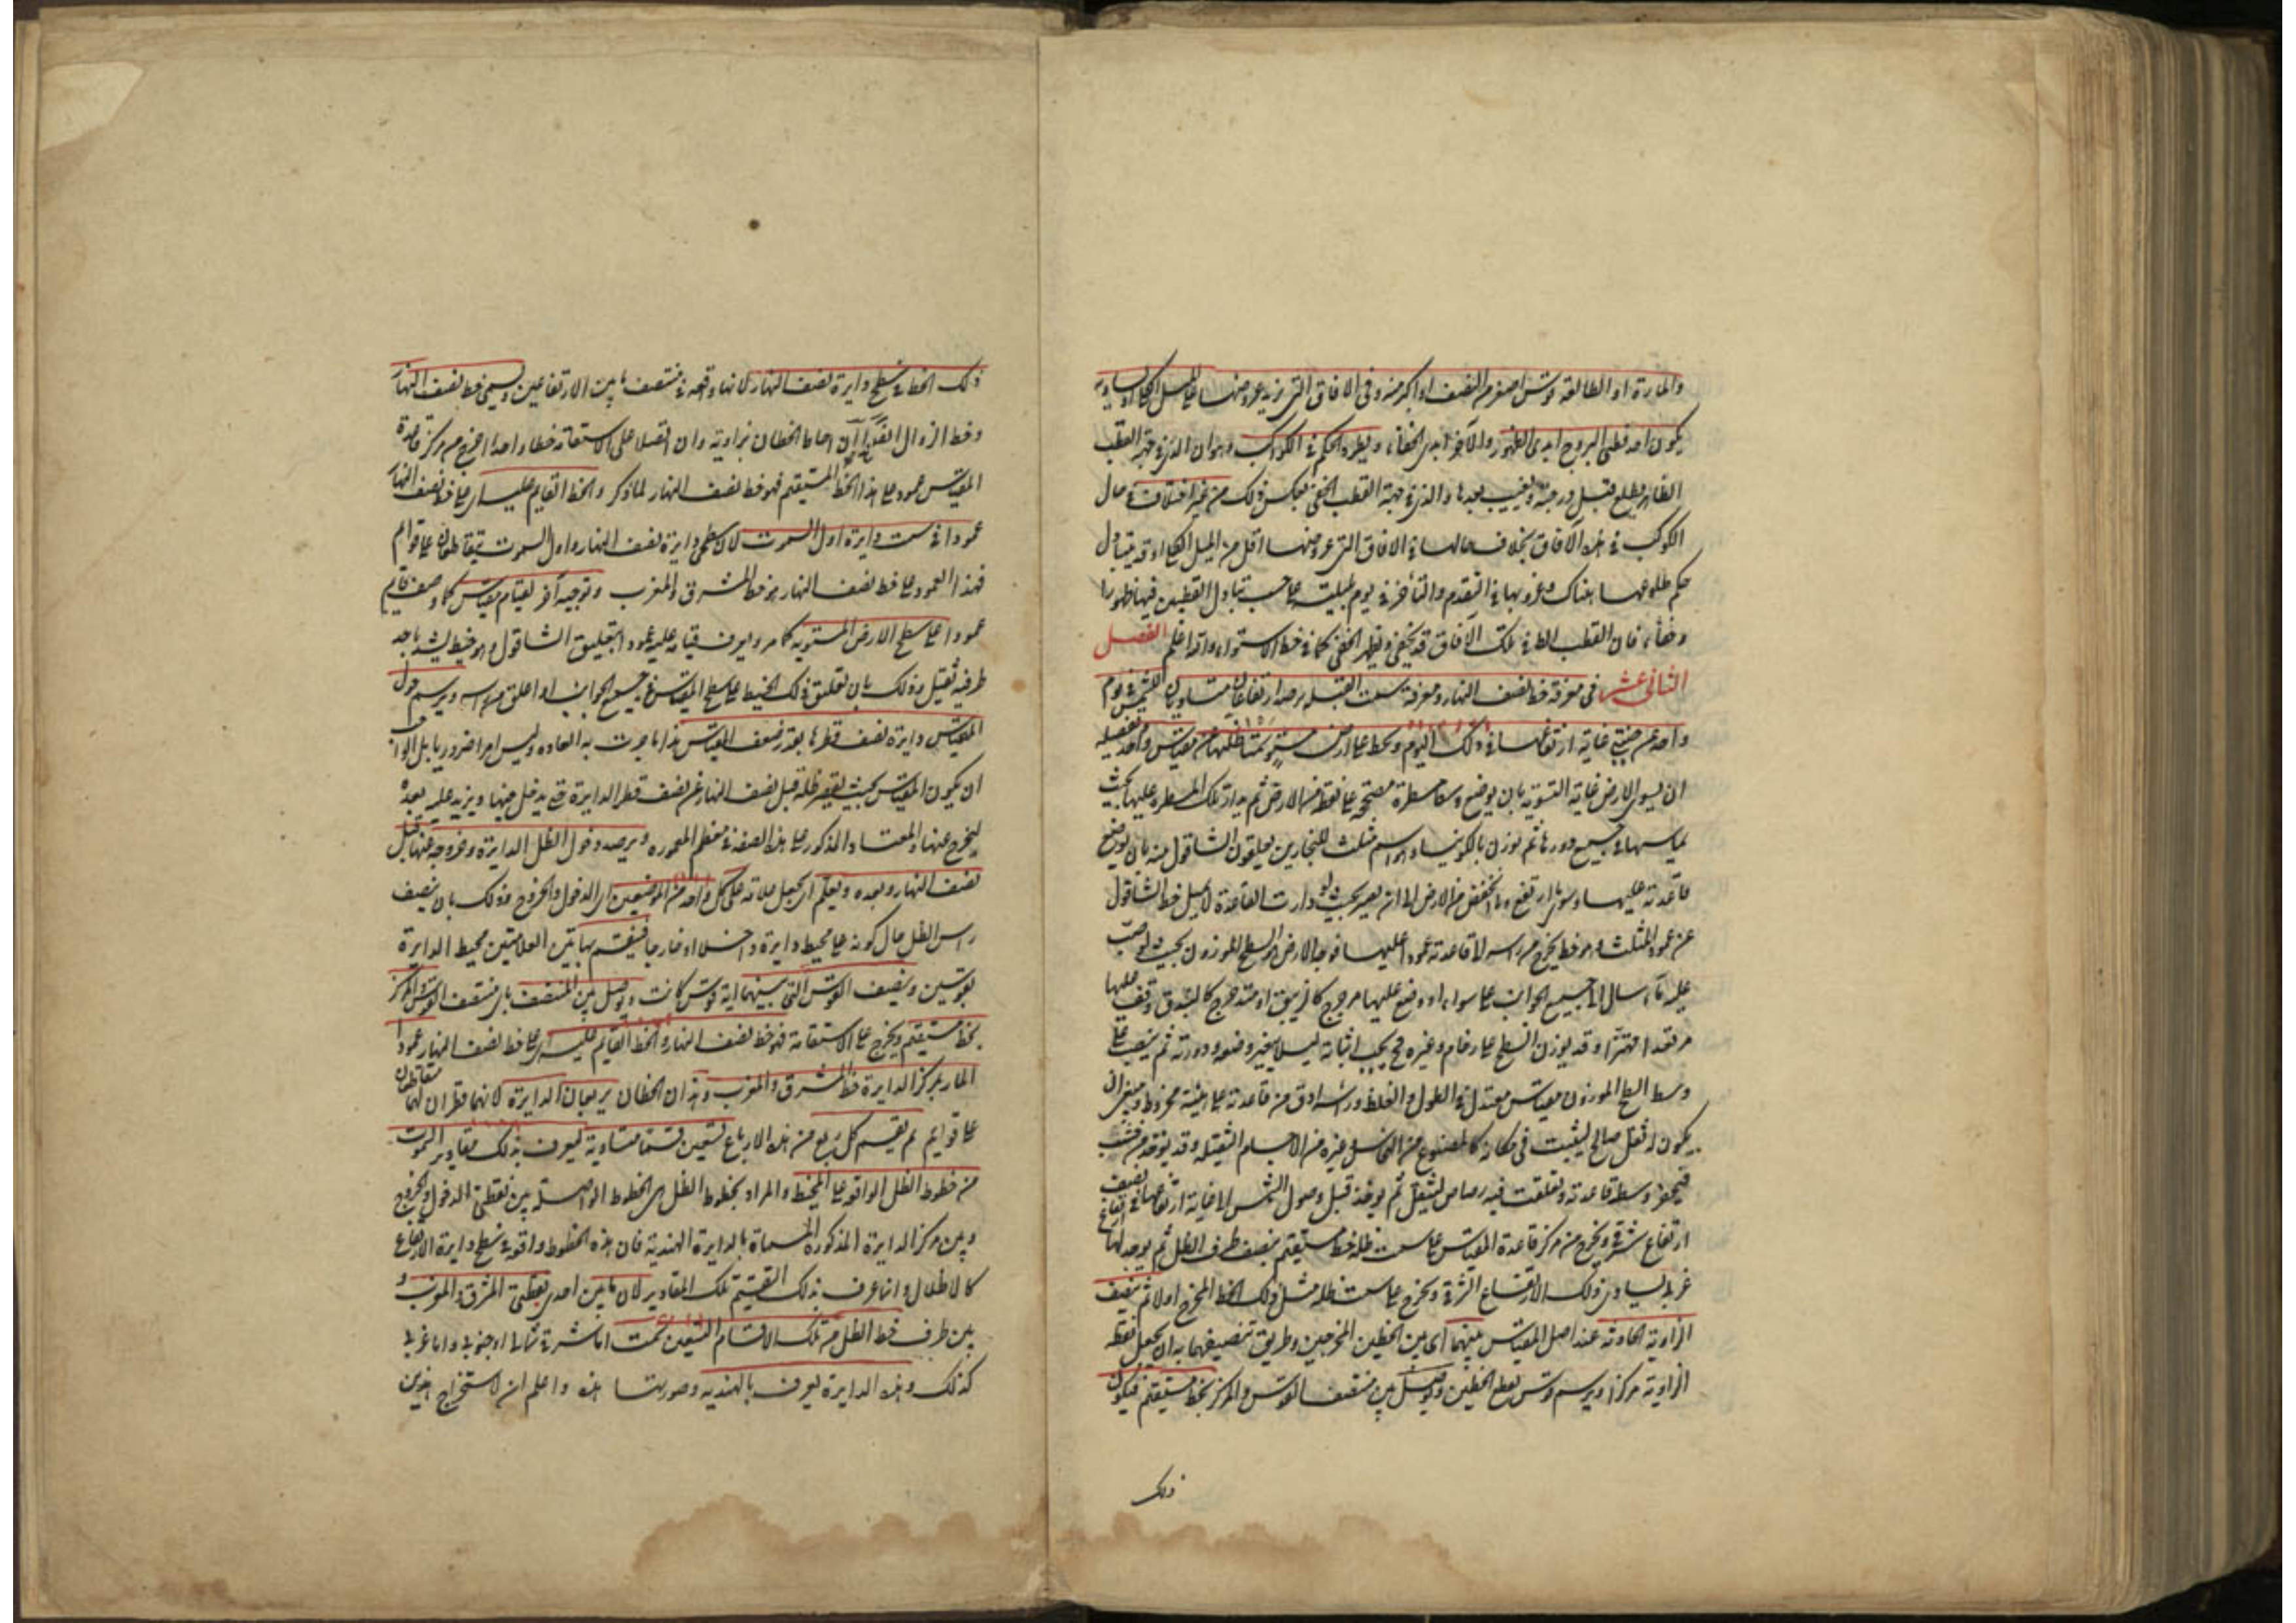 والمارة او الطالعة قوس اصغر من النصف او اكبر منه وفى الافاق التى يزيد عروضها على الميل الكلى او يساويه
يكون احد قطبى البروج ابدى الظهور والآخر ابدى الخفاء ويطرد الحكم فى الكواكب وهو ان الذى فى جهة القطب
الظاهر يطلع قبل درجته ويغيب بعدها والذى فى جهة القطب الخفى بعكس ذلك من غير اختلاف فى حال
الكوكب فى هذه الآفاق بخلاف حالها فى الافاق التى عروضها اقل من الميل الكلى اذ قد يتبادل
حكم طلوعها هناك وغروبها فى التقدم والتأخر فى يوم بليلته على حسب تبادل القطبين فيها ظهورا
وخفاء فان القطب الظ فى تلك الآفاق قد يخفى ويظهر الخفى كما فى خط الاستواء والله اعلم الفصل
الثانى عشر فى معرفة خط نصف النهار ومعرفة سمت القبلة يرصد ارتفاعان متساويان للشمس فى يوم
واحد عن جنبتى غاية ارتفاعها فى ذلك اليوم ويخط على ارض مستو سمتا ظلهما عن مقياس واحد تفصيله
ان يسوى الارض غاية التسوية بان يوضع وسط مسطرة مصححة على نقطة من الارض ثم يدار تلك المسطرة عليها بحيث
يماسها فى جميع دورها ثم يوزن بالكونيا وهو اسم مثلث للنجارين يعلقون الشاقول منه بان يوضع
قاعدته عليها ويسوى ما ارتفع وما انخفض من الارض الى ان يصير بحيث لو دارت القاعدة لا يميل خط الشاقول
عن عمود المثلث وهو خط يخرج من راسه الى قاعدته عمودا عليها فوجه الارض هو السطح الموزون بحيث لو صب
عليه ماء سال الى جميع الجوانب على سواء او وضع عليها مرجرج كالزيبق او متدحرج كالبندق وقف عليها
مرتعدا مهتزا وقد يوزن السطح على رخام وغيره فح يجب اثباته ليلا يتغير وضعه ودورته ثم ينصب على
وسط السطح الموزون مقياس معتدل فى الطول والغلظ وراسه ادق من قاعدته على هيئة مخروط وينبغى ان
يكون له ثقل صالح ليثبت فى مكانه كالمصنوع من النحاس وغيره من الاجسام الثقيلة وقد يتخذ من خشب
فيحفر وسط قاعدته وتعلقت فيه رصاص ليثقل ثم يوخذ قبل وصول الشمس الى غاية ارتفاعها نصف
ارتفاع شرقى ويخرج من مركز قاعدة المقياس على سمت ظله خط مستقيم ينصف طرف الظل ثم يوجد لها ارتفاع
غربى يساوى ذلك الارتفاع الشرقى ويخرج على سمت ظله مثل ذلك الخط المخرج اولا ثم ينصف
الزاوية الحادثة عند اصل المقياس بينهما اى بين الخطين المخرجين وطريق تنصيفها به ان يجعل نقطة
الزاوية مركزا ويرسم قوس يقطع الخطين ويوصل بين منتصف القوس والمركز بخط مستقيم فيكون
ذلك
ذلك الخط فى سطح دايرة نصف النهار لانها واقعة فى منتصف ما بين الارتفاعين ويسمى خط نصف النهار
وخط الزوال ايضا ان احاط الخطان بزاوية وان اتصلا على الاستقامة خطا واحدا اخرج من مركز قاعدة
المقياس عمود على هذا الخط المستقيم فهو خط نصف النهار لما ذكر والخط القايم عليه اى على خط نصف النهار
عمودا فى سمت دايرة اول السموت لان سطحى دايرة نصف النهار واول السموت يتقاطعان على قوايم
فهذا العمود على خط نصف النهار هو خط المشرق والمغرب وتوجيه آخر يقام مقياس كما وصف قايم
عمودا على سطح الارض المستوية كما مر ويعرف قيامه عليه عمودا بتعليق الشاقول وهو خيط يشد باحد
طرفيه ثقيل وذلك بان تعلق ذلك الخيط على سطح المقياس فى جميع الجوانب او اعلق من راسه ويرسم حول
المقياس دايرة نصف قطرها بقدر ضعف المقياس هذا ما جرت به العادة وليس امرا ضروريا بل الواجب
ان يكون المقياس بحيث يقصر ظله قبل نصف النهار عن نصف قطر الدايرة حتى يدخل فيها ويزيد عليه بعده
ليخرج عنها والمعتاد المذكور على هذه الصفة فى معظم المعمورة ويرصد دخول الظل الدايرة وخروجه عنها قبل
نصف النهار وبعده ويعلم اى يجعل علامة على كل واحد من الموضعين اى الدخول والخروج وذلك بان ينصف
راس الظل حال كونه على محيط دايرة داخلا او خارجا فينقسم بهاتين العلامتين محيط الدايرة
بقوسين وينصف القوس التى بينهما اية قوس كانت ويوصل بين المنتصف باى منتصف القوس والمركز
بخط مستقيم ويخرج على الاستقامة فهو خط نصف النهار والخط القايم عليه اى على خط نصف النهار عمودا
المار بمركز الدايرة خط المشرق والمغرب وهذان الخطان يربعان الدايرة لانهما قطران لها متقاطعان
على قوايم ثم يقسم كل ربع من هذه الارباع تسعين قسما متساوية ليعرف بذلك مقادير السموت
من خطوط الظل الواقع على المحيط والمراد بخطوط الظل هى الخطوط الواصلة بين نقطتى الدخول والخروج
وبين مركز الدايرة المذكورة المسماة بالدايرة الهندية فان هذه الخطوط واقعة فى سطح دايرة الارتفاع
كالاظلال وانما عرف بذلك التقسيم تلك المقادير لان ما بين احدى نقطتى المشرق والمغرب و
بين طرف خط الظل من تلك الاقسام التسعين سمت اما شرقى شمالى او جنوبى واما غربى
كذلك وهذه الدايرة يعرف بالهندية وصورتها هذه واعلم ان لاستخراج هذين